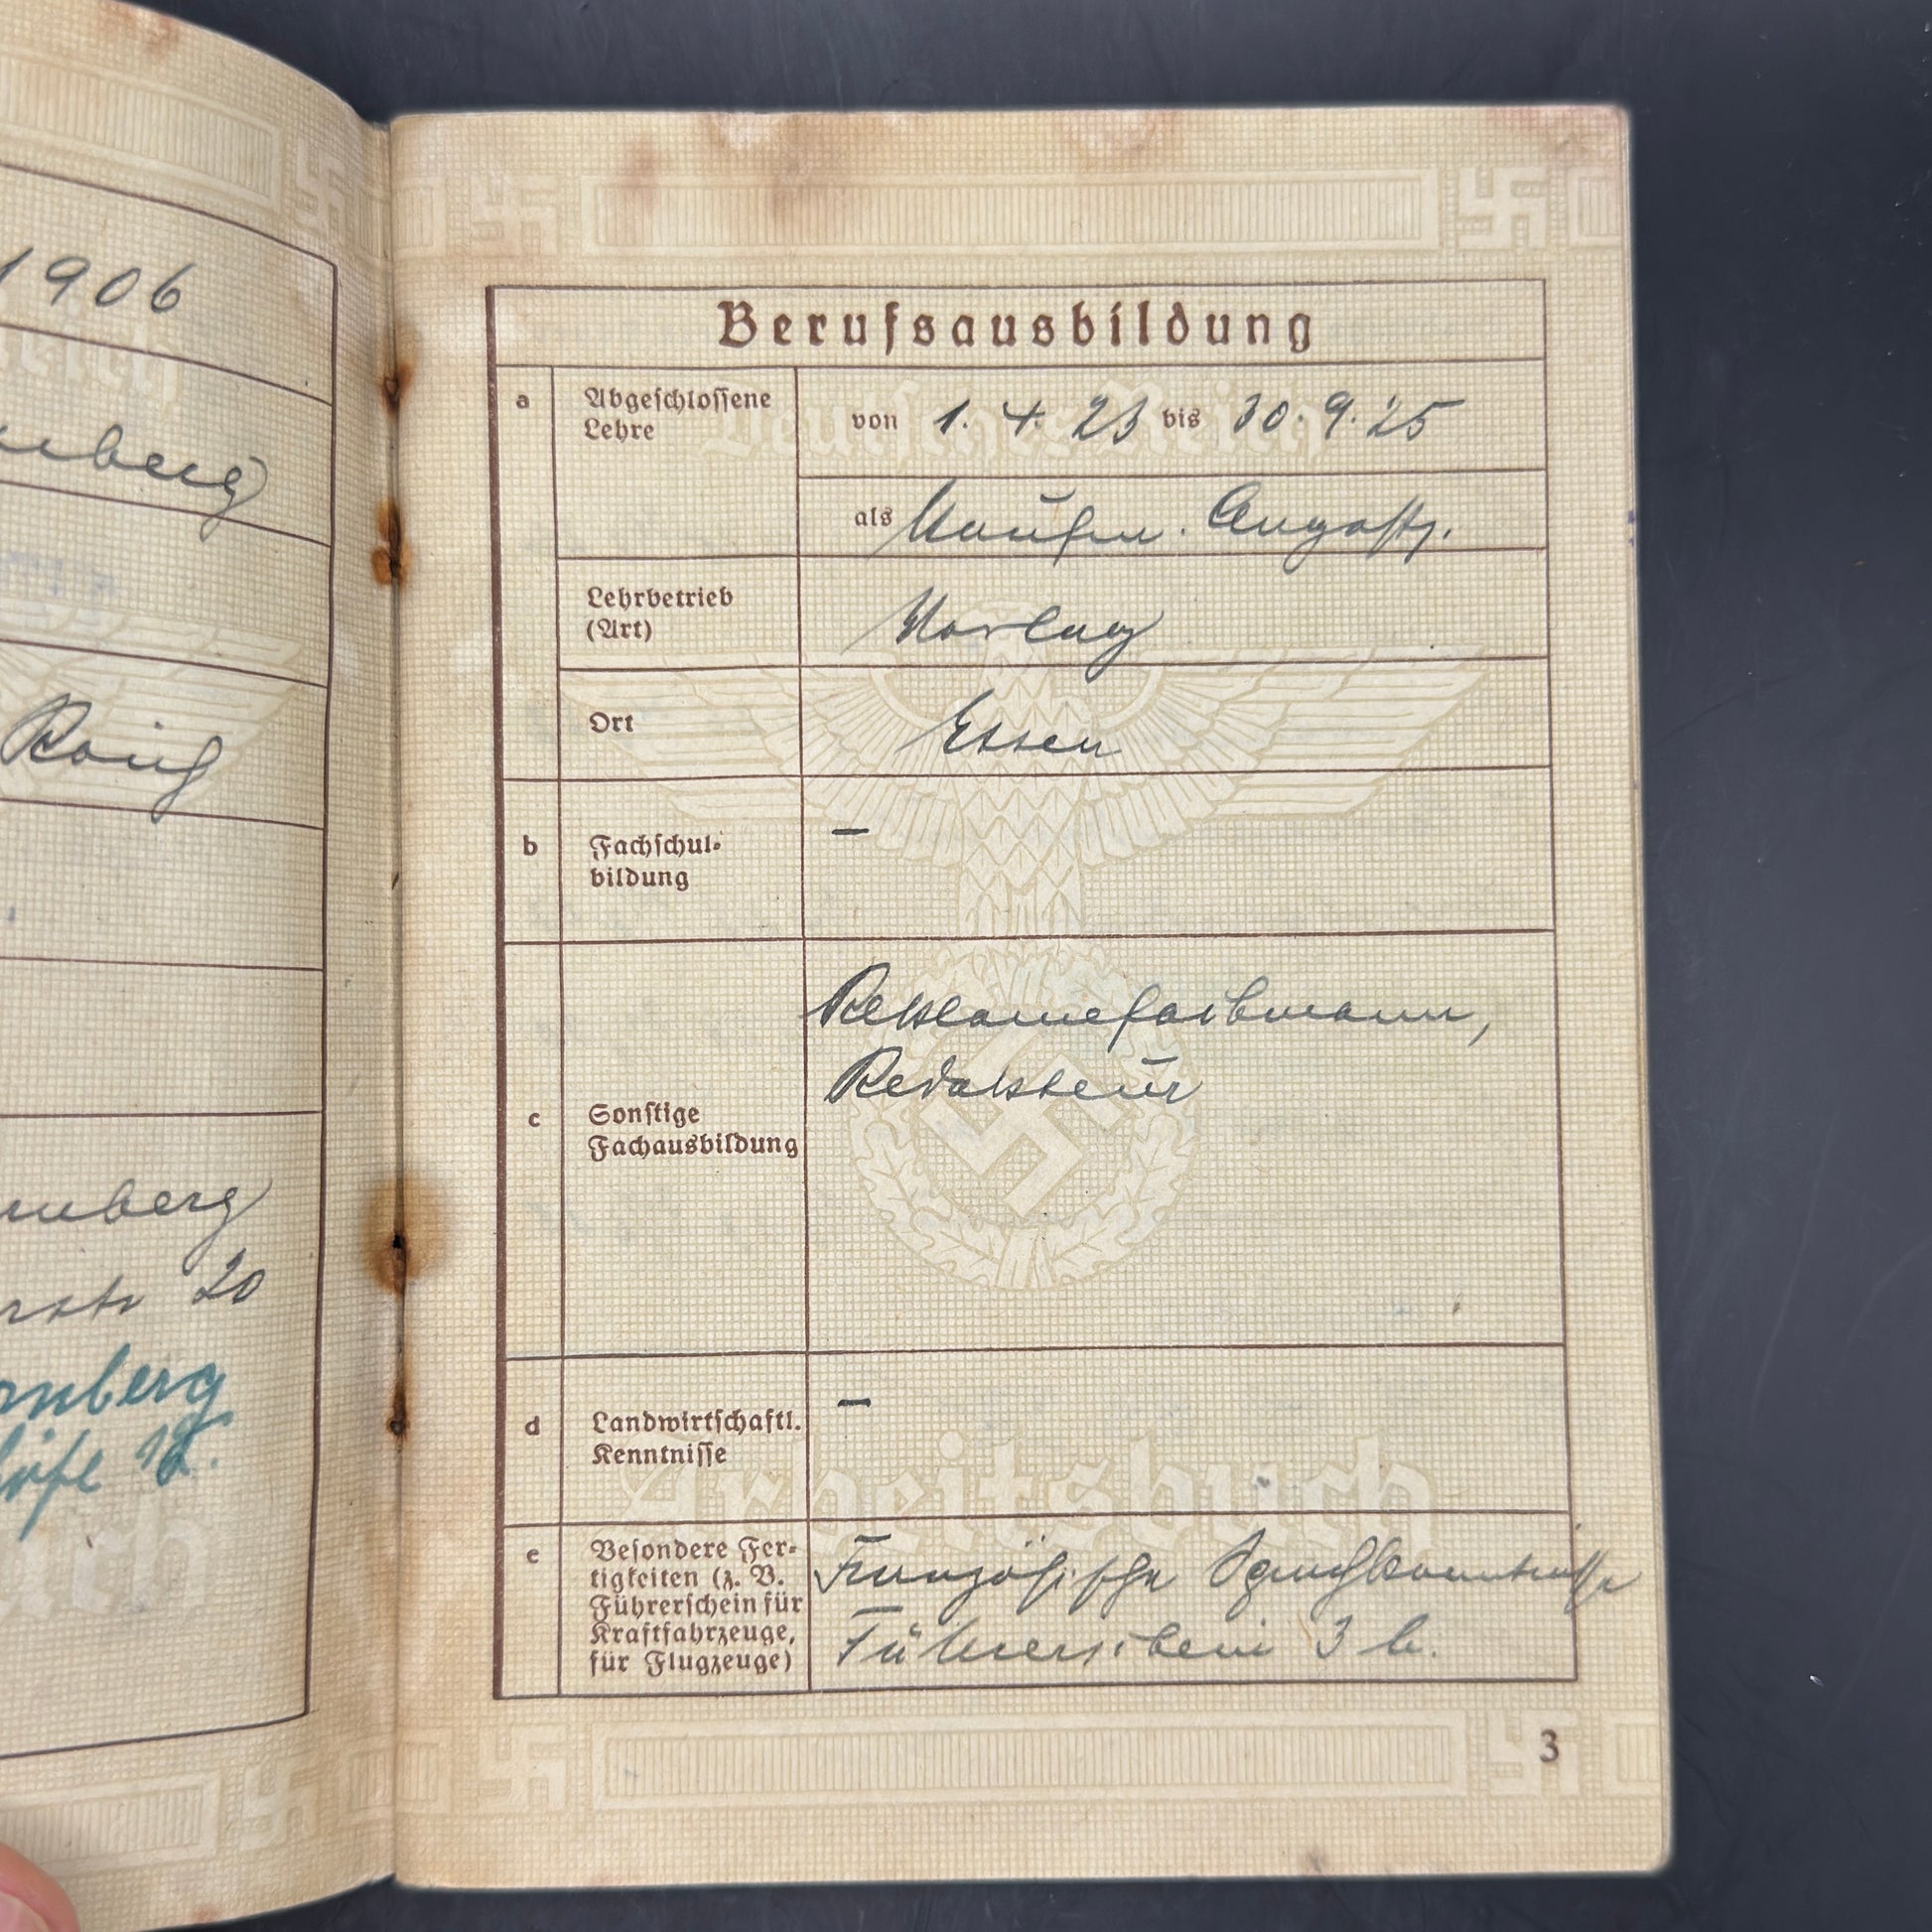 1906
nberg
König
nberg
rstr 20
rnberg
höfl 12.
Berufsausbildung
a
Abgeschlossene
Lehre
von 1. 4. 23 bis 30. 9. 25
als Kaufm. Angest.
Lehrbetrieb
(Art)
Verlag
Ort
Essen
b
Fachschul-
bildung
—
c
Sonstige
Fachausbildung
Reklamefachmann,
Redakteur
d
Landwirtschaftl.
Kenntnisse
—
e
Besondere Fer-
tigkeiten (z. B.
Führerschein für
Kraftfahrzeuge,
für Flugzeuge)
Französische Sprachkenntnisse
Führerschein 3 b.
Deutsches Reich
Arbeitsbuch
3